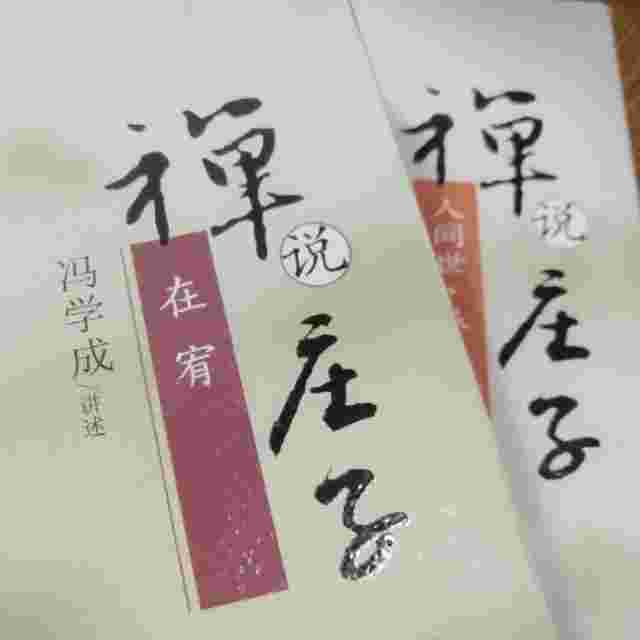 禅说庄子
在宥
冯学成/讲述
禅说庄子
人间世